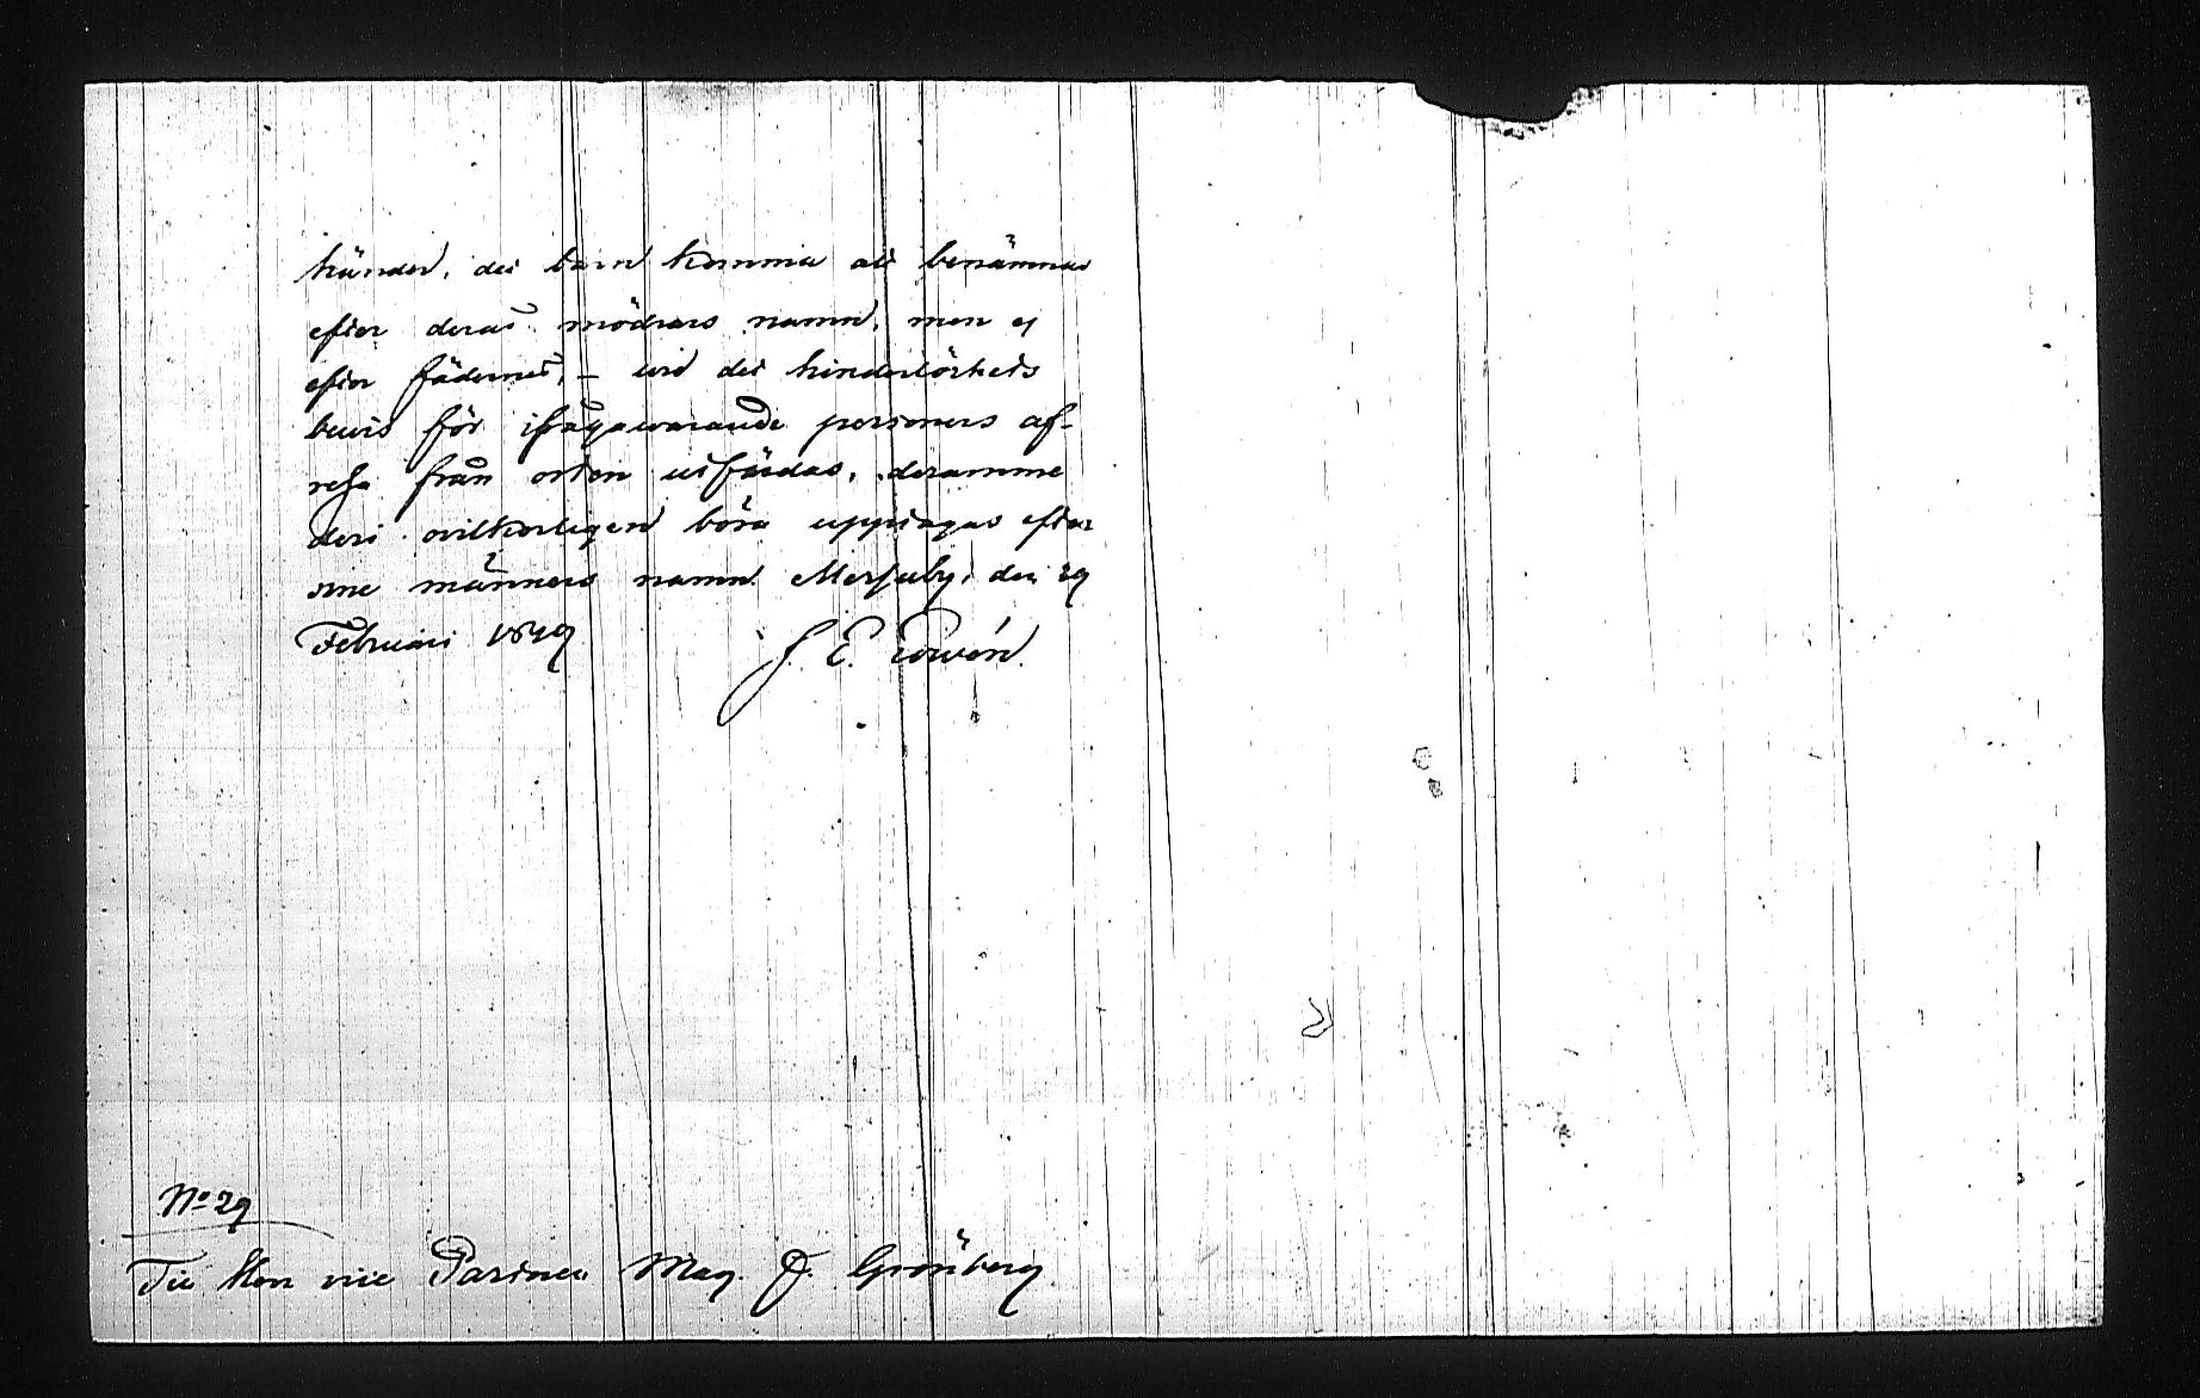 händer, det barn komma att benämnas
efter deras mödrars namn, men ej
efter fädernes, – vid det hinderlöshets
bevis för ifrågawarande personers af-
resa från orten utfärdas, deramme
deri ovilkorligen böra upptagas efter
sine männers namn. den 29
Februari 1849
J. E.
No 29
Till Herr vice Pastoren Mag. J. Grönberg